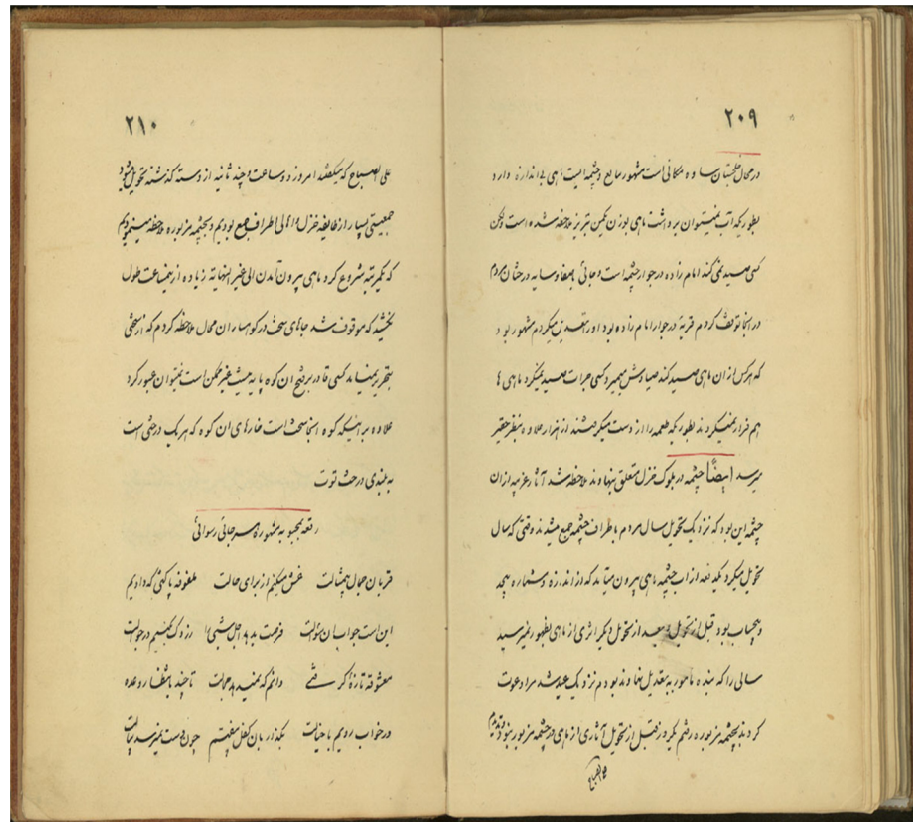 ۲۰۹
در محال خلجستان ساوه مکانی است مشهور مابع و چشمه ایست ماهی بی اندازه دارد
بطوریکه آب نمیتوان برداشت ماهی بوزن یکمن تبریز ملاحظه شده است ولکن
کسی صید نمی کند امام زاده در جوار چشمه است و جائی باصفا و سایه درختان مردم
در انجا توقف کردم قریهٔ در جوار امام زاده بود او را تعدیل میکردم مشهور بود
که هرکس از ان ماهی صید کند صیادش میمیرد و کسی جرات صید نمیکرد ماهی ها
هم فرار نمیکردند بطوریکه طعمه را از دست میگرفتند از هزار علاوه بنظر حقیر
میرسد ایضاً چشمه در بلوک خزل متعلق بنهاوند ملاحظه شد آثار غریبه از ان
چشمه این بود که نزدیک بتحویل سال مردم باطراف چشمه جمع میشدند وقتی که سال
تحویل میکرد یکدفعه از اب چشمه ماهی بیرون میآمد که از اندازه و شماره بیحد
و بیحساب بود قبل از تحویل و بعد از تحویل دیگر اثری از ماهی بظهور نمیرسید
سالی را که بنده مامور به تعدیل نهاوند بودم نزدیک عید شد مرا دعوت
کردند بچشمه مزبوره رفتم یکروز قبل از تحویل آثاری از ماهی در چشمه مزبور نبود و ندیدم
علی الصباح
۲۱۰
علی الصباح که میگفتند امروز دو ساعت و چند ثانیه از دسته گذشته تحویل میشود
جمعیتی بسیار از طایفه خزل و اهالی اطراف جمع بودیم و بچشمه مزبوره ملاحظه مینمودیم
که یکمرتبه شروع کرد ماهی بیرون آمدن الی غیر النهایه زیاده از نیمساعت طول
نکشید که موقوف شد جاهای سخت در کوهساران محال ملاحظه کردم که از سختی
بتحریر نمیاید کسی قادر بر فتح ان کوه پایه نیست غیر ممکن است نمیتوان عبور کرد
علاوه بر اینکه کوه انجا سخت است غارهای ان کوه که هریک درختی است
به بلندی درخت توت
رقعه بمحبوبه مشهوره هر جائی رسوائی
قربان جمال بیمثالت غش میکنم از برای حالت ملفوفه پاکتی که دادیم
این است جواب ان سئوالت فرصت بدهد اجل شبی را روزک بکنیم در جوالت
معشوقه تازهٔ گرفتی دانم که نمیدهد مجالت تا چند بانتظار و وعده
در خواب رویم با خیالت بگذار بان کفل بیفتم چون دست نمیرسد ببالت